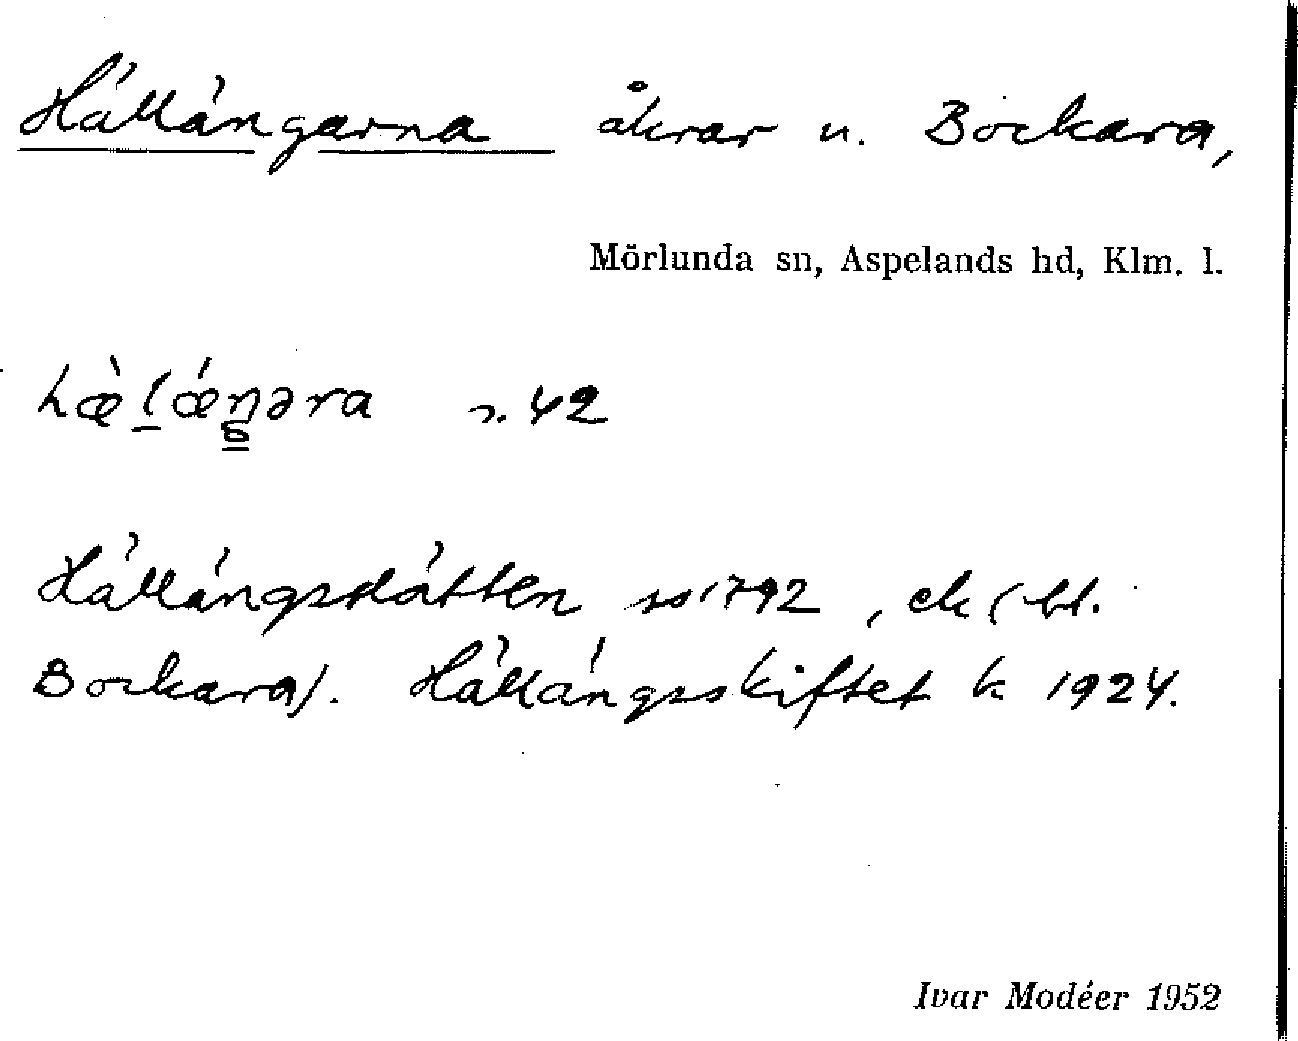 Hällängarna åkrar u. Bockara,
Mörlunda sn, Aspelands hd, Klm. l.
hæ̀lǽŋəra s. 42
Hällängsslätten ss 1792, ek (bl.
Bockara). Hällängsskiftet k 1924.
Ivar Modéer 1952